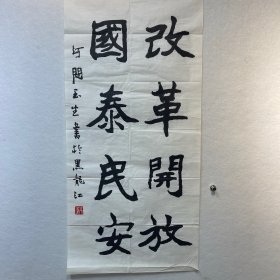 改革開放
國泰民安
玉生書於黑龍江